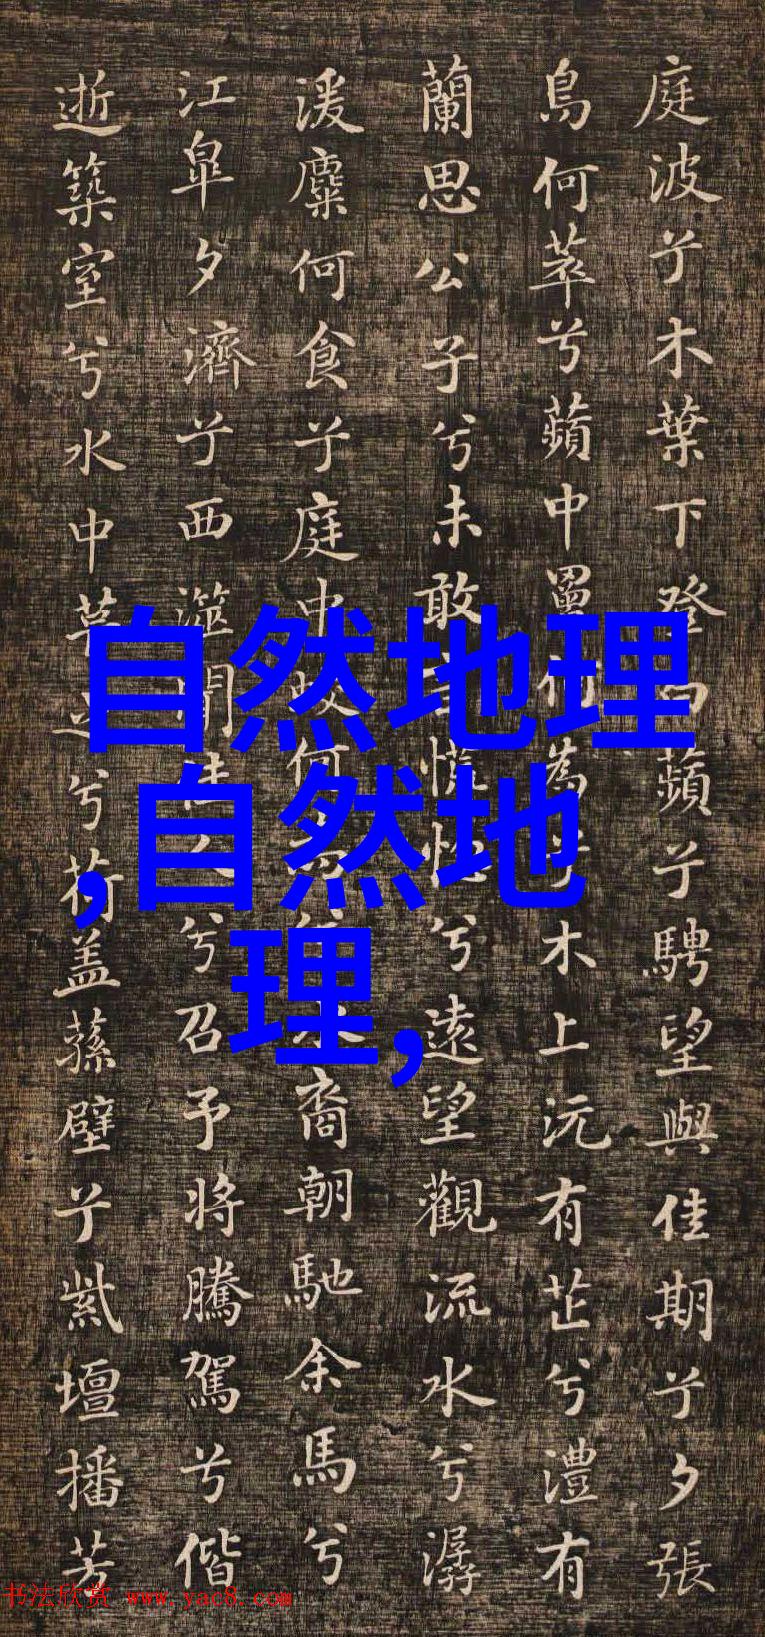 庭波兮木葉下登白蘋兮騁望與佳期兮夕張
鳥何萃兮蘋中罾何為兮木上沅有芷兮澧有
蘭思公子兮未敢言慌惚兮遠望觀流水兮潺
湲麋何食兮庭中蛟何為兮水裔朝馳余馬兮
江皐夕濟兮西澨聞佳人兮召予將騰駕兮偕
逝築室兮水中葺之兮荷盖蓀壁兮紫壇播芳
自然地理
,自然地
理,
书法欣赏 www.yac8.com